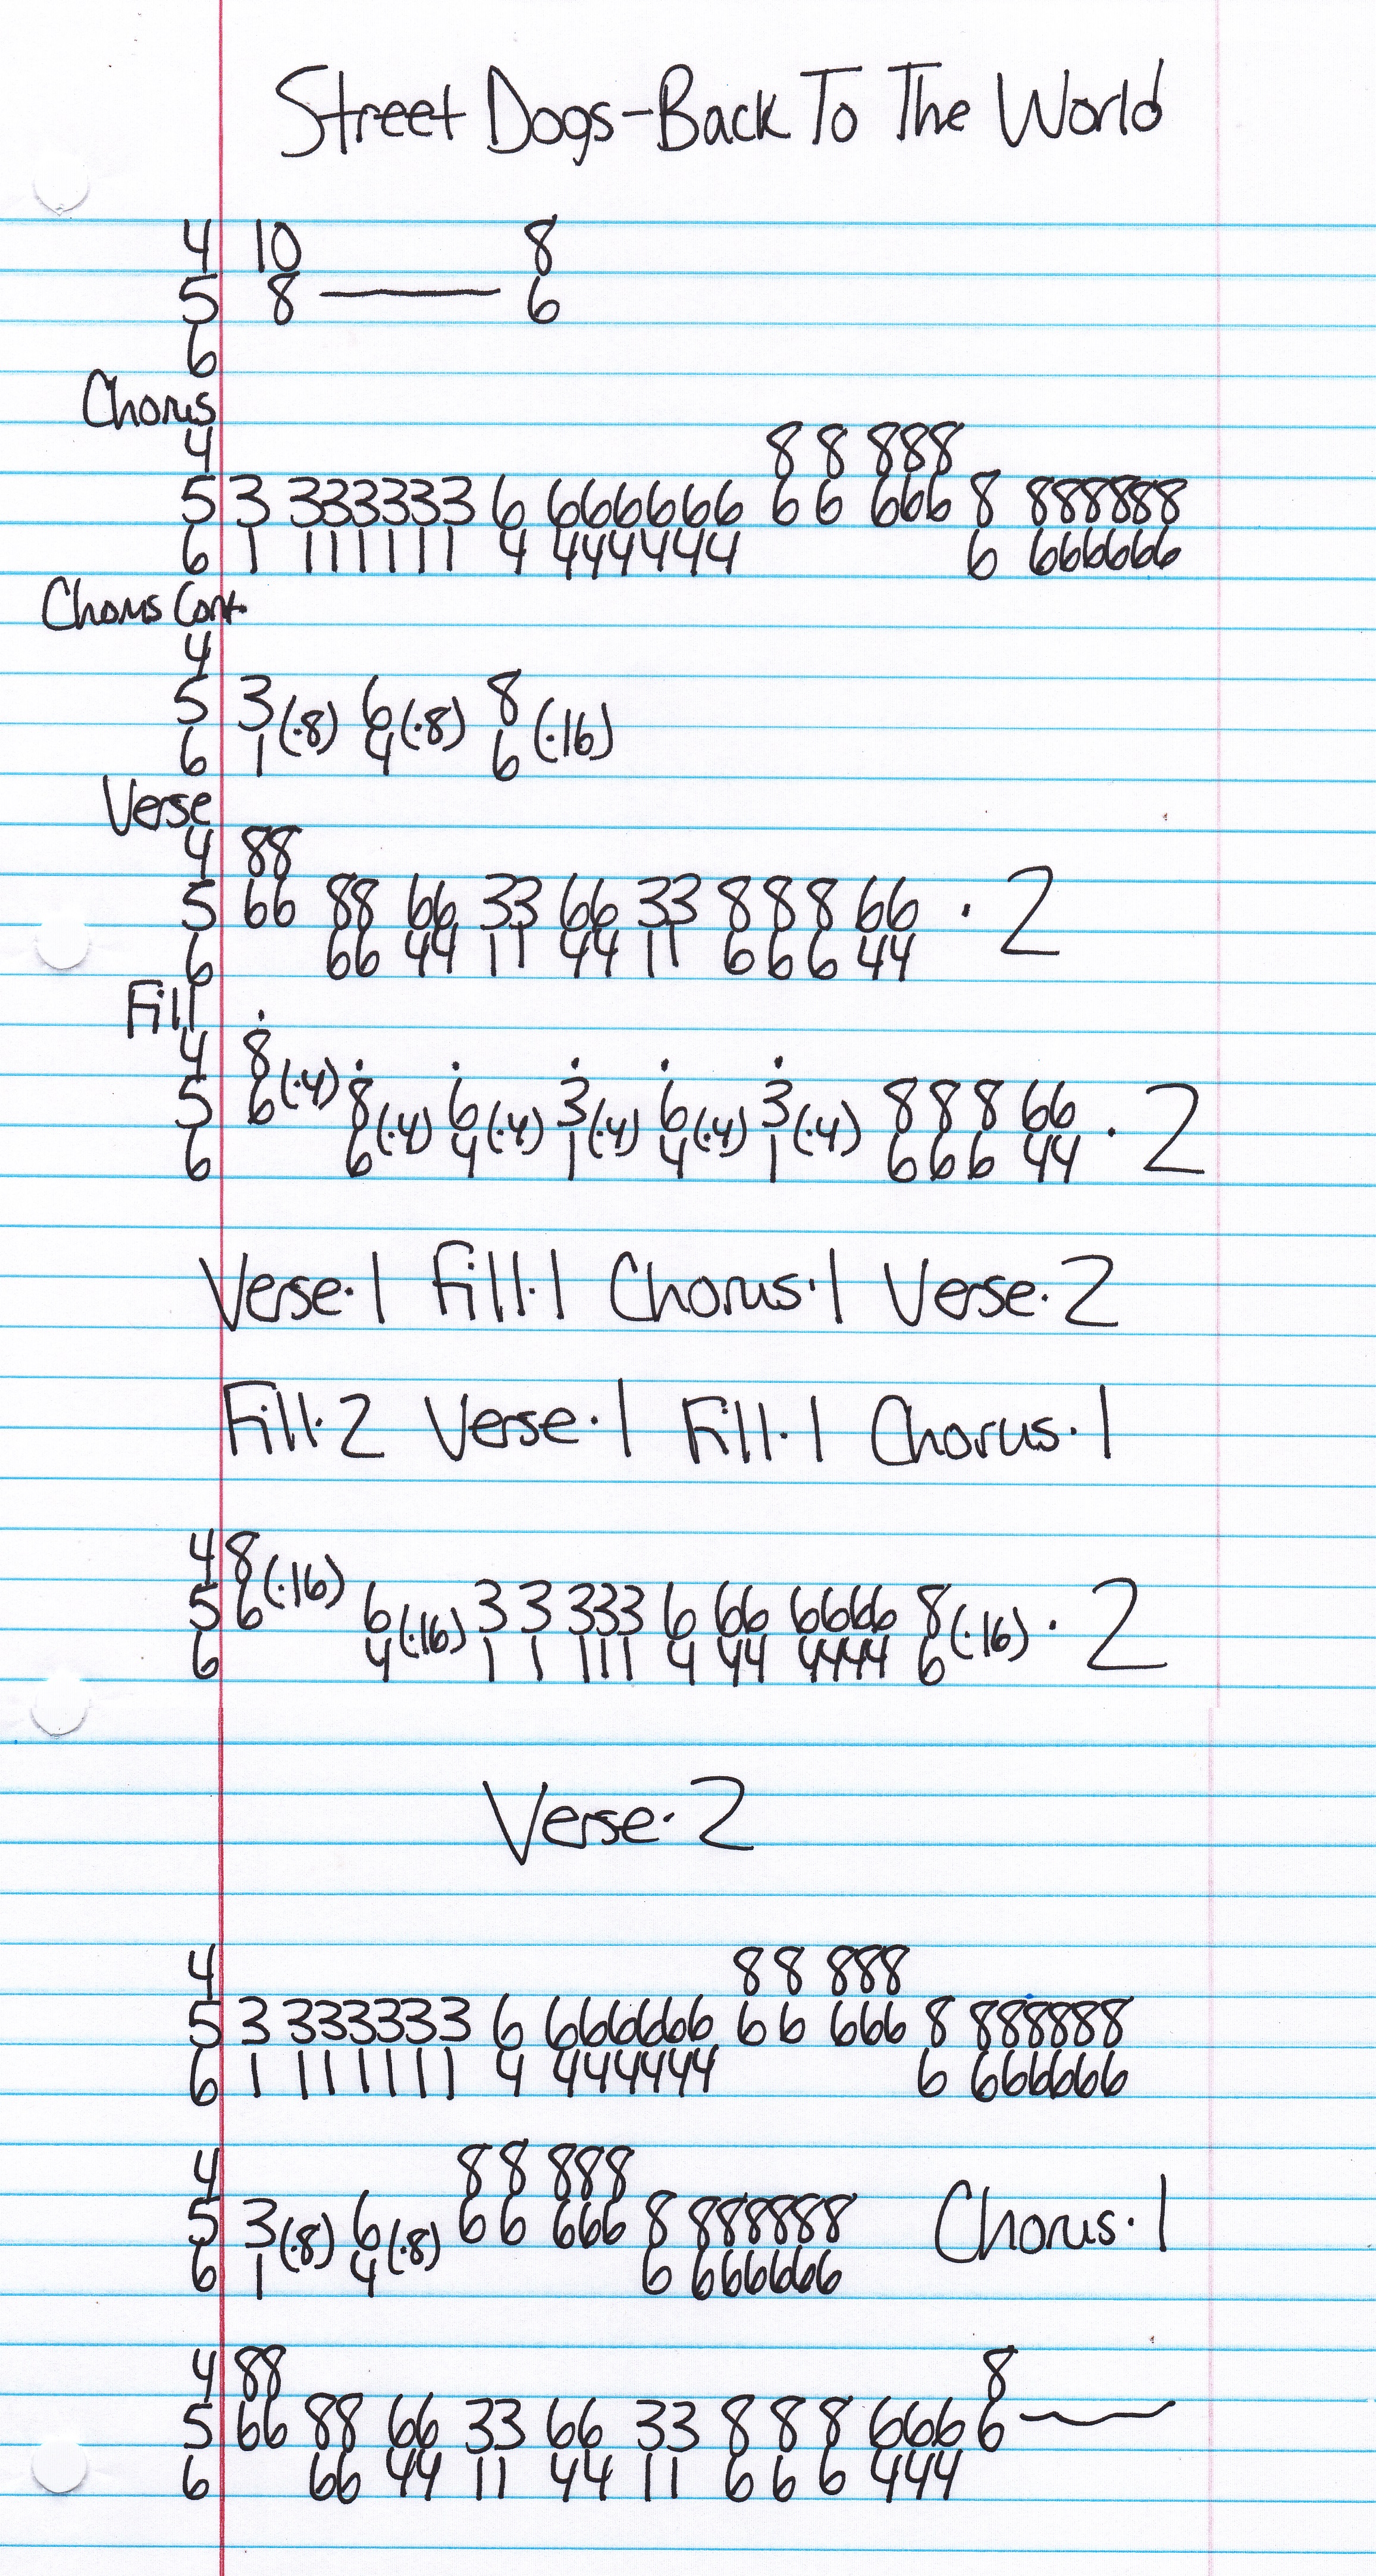 Street Dogs-Back To The World
4 10 8
5 8 —— 6
6
Chorus
4 8 8 888
5 3 333333 6 666666 6 6 666 8 888888
6 1 111111 4 444444 6 666666
Chorus Cont.
4
5 3 (·8) 6 (·8) 8 (·16)
6 1 4 6
Verse
4 88
5 66 88 66 33 66 33 8 8 8 66 · 2
6 66 44 11 44 11 6 6 6 44
Fill
4 8
5 6 (·4) 8 (·4) 6 (·4) 3 (·4) 6 (·4) 3 (·4) 8 8 8 66 · 2
6 6 4 1 4 1 6 6 6 44
Verse·1 Fill·1 Chorus·1 Verse·2
Fill·2 Verse·1 Fill·1 Chorus·1
4 8 (·16)
5 6 6 (·16) 3 3 333 6 66 6666 8 (·16) · 2
6 4 1 1 111 4 44 4444 6
Verse·2
4 8 8 888
5 3 333333 6 666666 6 6 666 8 888888
6 1 111111 4 444444 6 666666
4 8 8 888
5 3 (·8) 6 (·8) 6 6 666 8 888888 Chorus·1
6 1 4 6 666666
4 88 8
5 66 88 66 33 66 33 8 8 8 666 6 ——
6 66 44 11 44 11 6 6 6 444